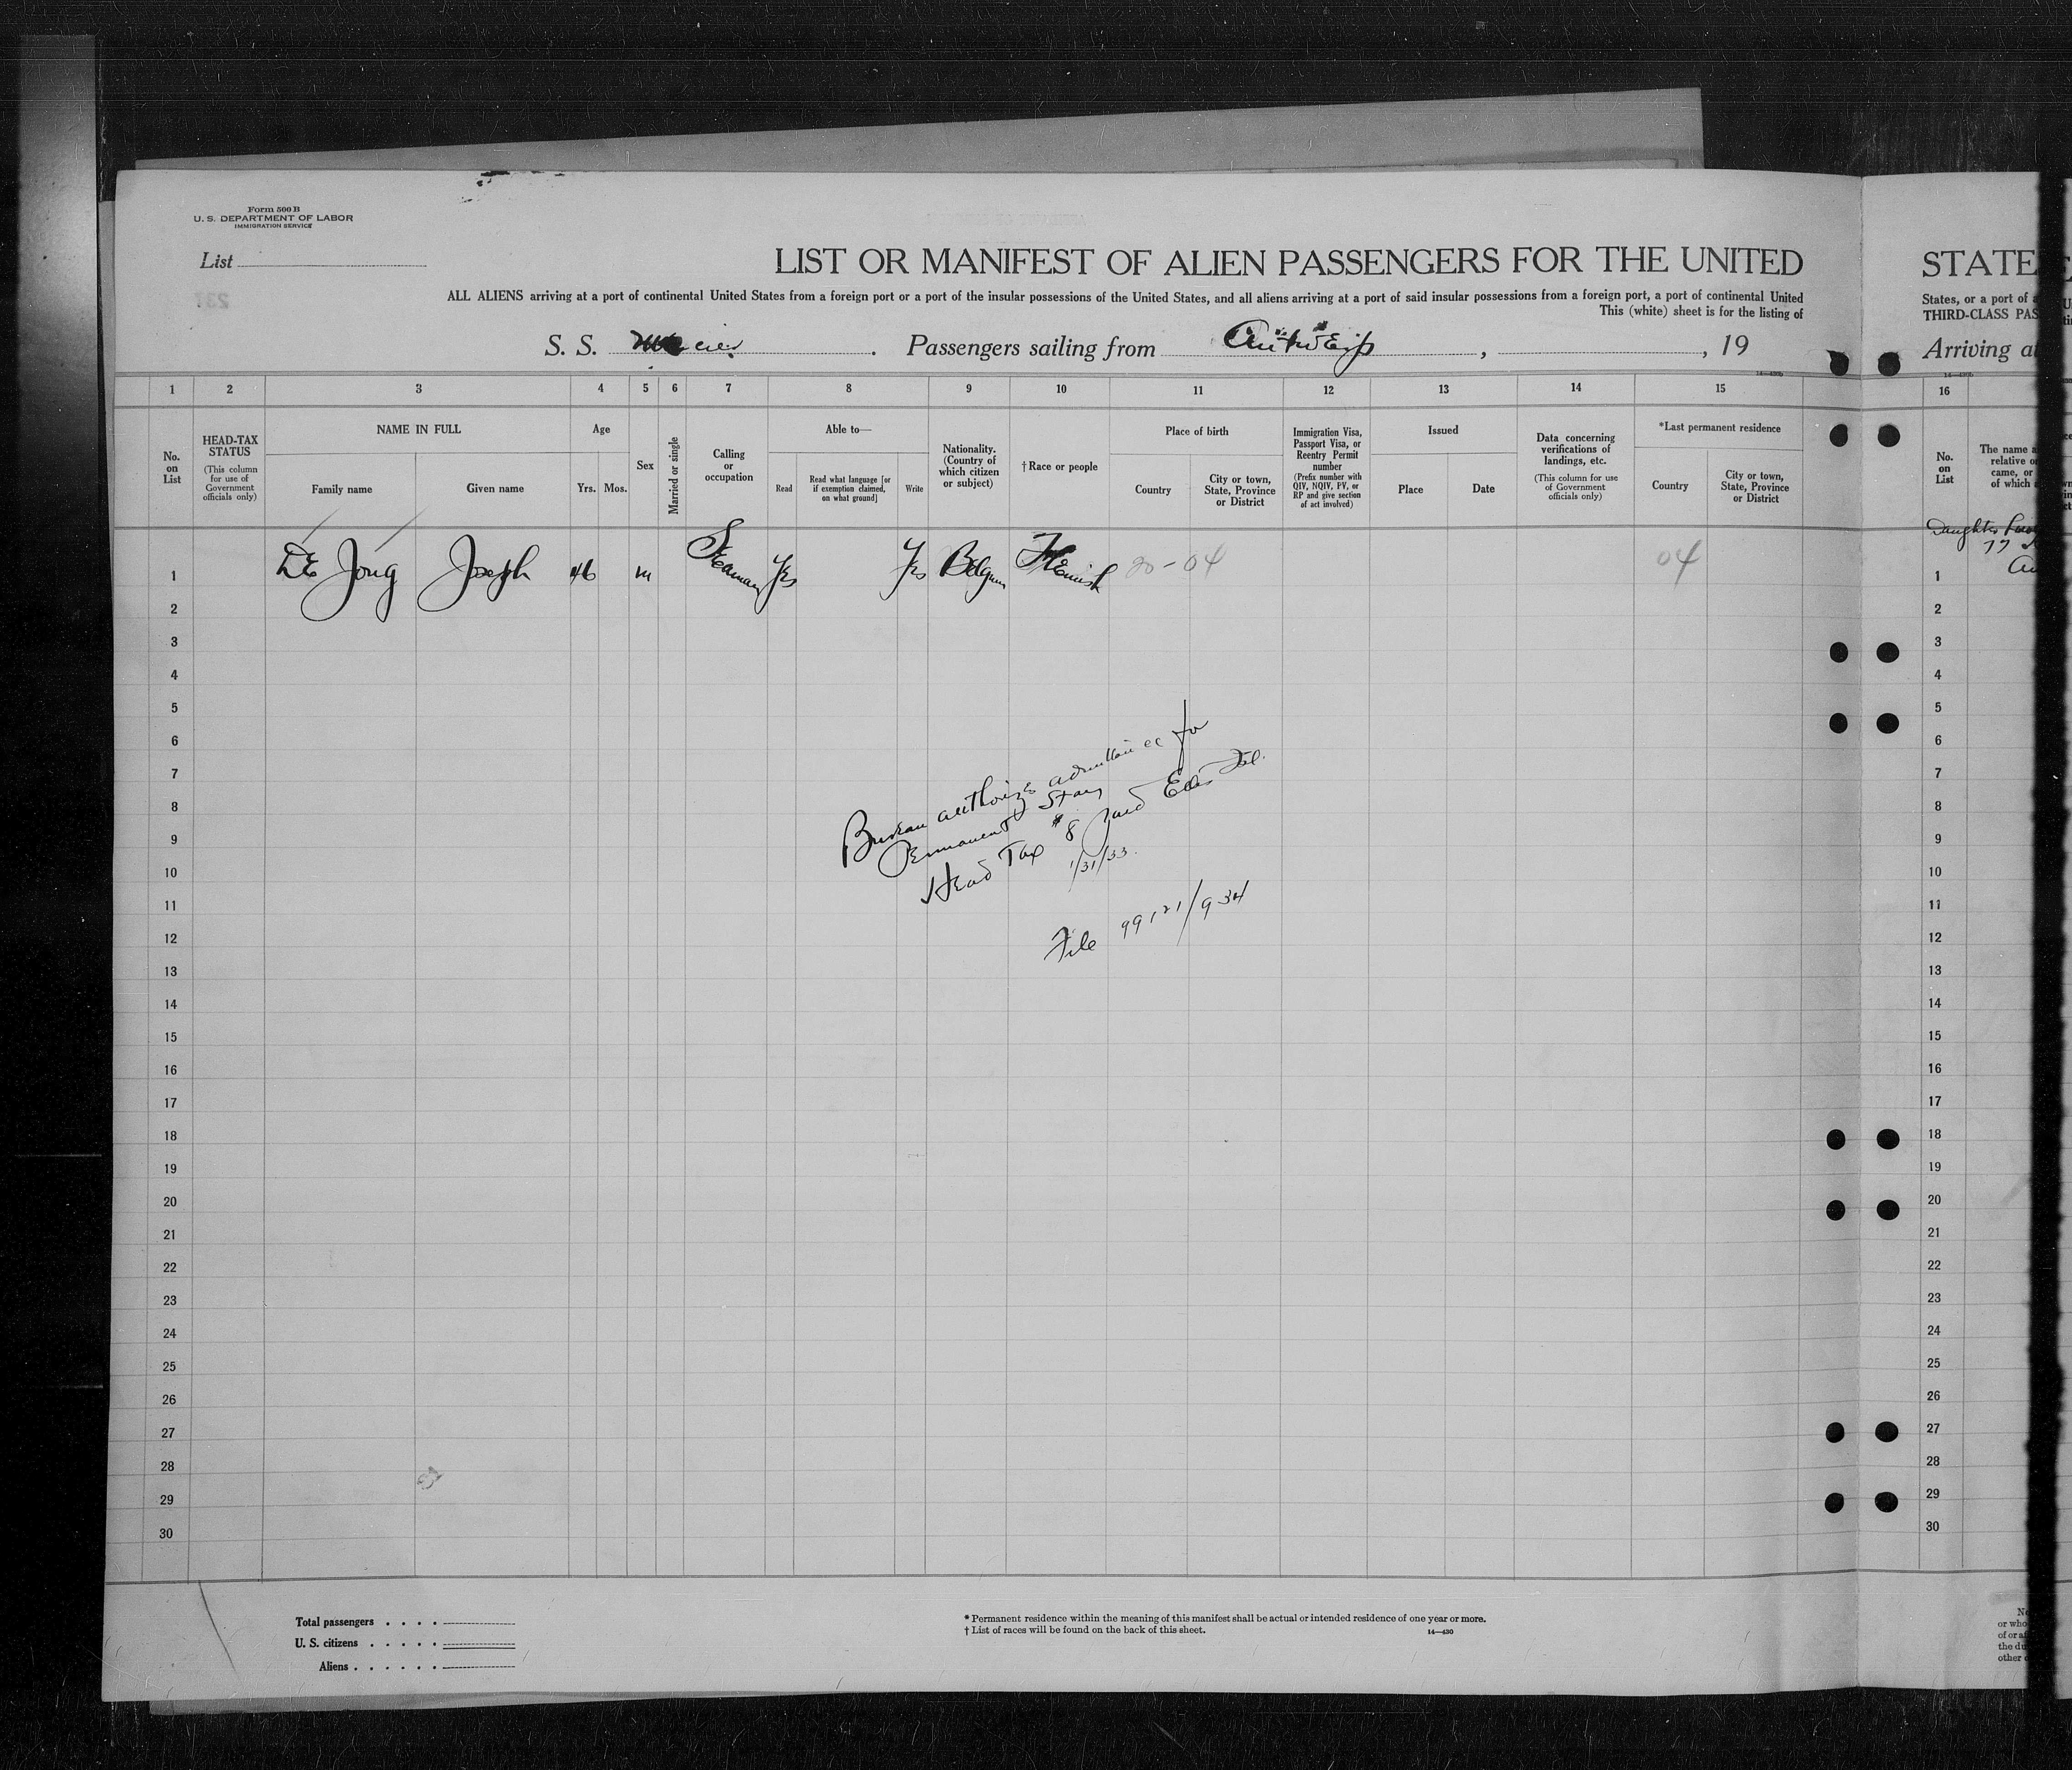 Form 500 B
U. S. DEPARTMENT OF LABOR
IMMIGRATION SERVICE
List
LIST OR MANIFEST OF ALIEN PASSENGERS FOR THE UNITED
ALL ALIENS arriving at a port of continental United States from a foreign port or a port of the insular possessions of the United States, and all aliens arriving at a port of said insular possessions from a foreign port, a port of continental United
This (white) sheet is for the listing of
S. S. . Passengers sailing from Antwerp , , 19
1 2 3 4 5 6 7 8 9 10 11 12 13 14 15
No. on List
HEAD-TAX STATUS
(This column for use of Government officials only)
NAME IN FULL
Family name
Given name
Age
Yrs. Mos.
Sex
Married or single
Calling or occupation
Able to—
Read
Read what language [or if exemption claimed, on what ground]
Write
Nationality. (Country of which citizen or subject)
† Race or people
Place of birth
Country
City or town, State, Province or District
Immigration Visa, Passport Visa, or Reentry Permit number
(Prefix number with QIV, NQIV, PV, or RP and give section of act involved)
Issued
Place
Date
Data concerning verifications of landings, etc.
(This column for use of Government officials only)
*Last permanent residence
Country
City or town, State, Province or District
1 De Jong Joseph 46 m Seaman Yes Yes Belgium Flemish 20-04 04
2
3
4
5
6
7
8
9
10
11
12
13
14
15
16
17
18
19
20
21
22
23
24
25
26
27
28
29
30
Bureau authorizes admittance for
Permanent Stay
Head Tax $8 paid Ellis Isl.
1/31/33.
File 99121/934
Total passengers . . . .
U. S. citizens . . . . .
Aliens . . . . . .
* Permanent residence within the meaning of this manifest shall be actual or intended residence of one year or more.
† List of races will be found on the back of this sheet.
14—430
STATE
States, or a port of
THIRD-CLASS PAS
Arriving at
16
No. on List
The name
relative o
came, or
of which
Daughter
1
2
3
4
5
6
7
8
9
10
11
12
13
14
15
16
17
18
19
20
21
22
23
24
25
26
27
28
29
30
or who
of or a
the du
other